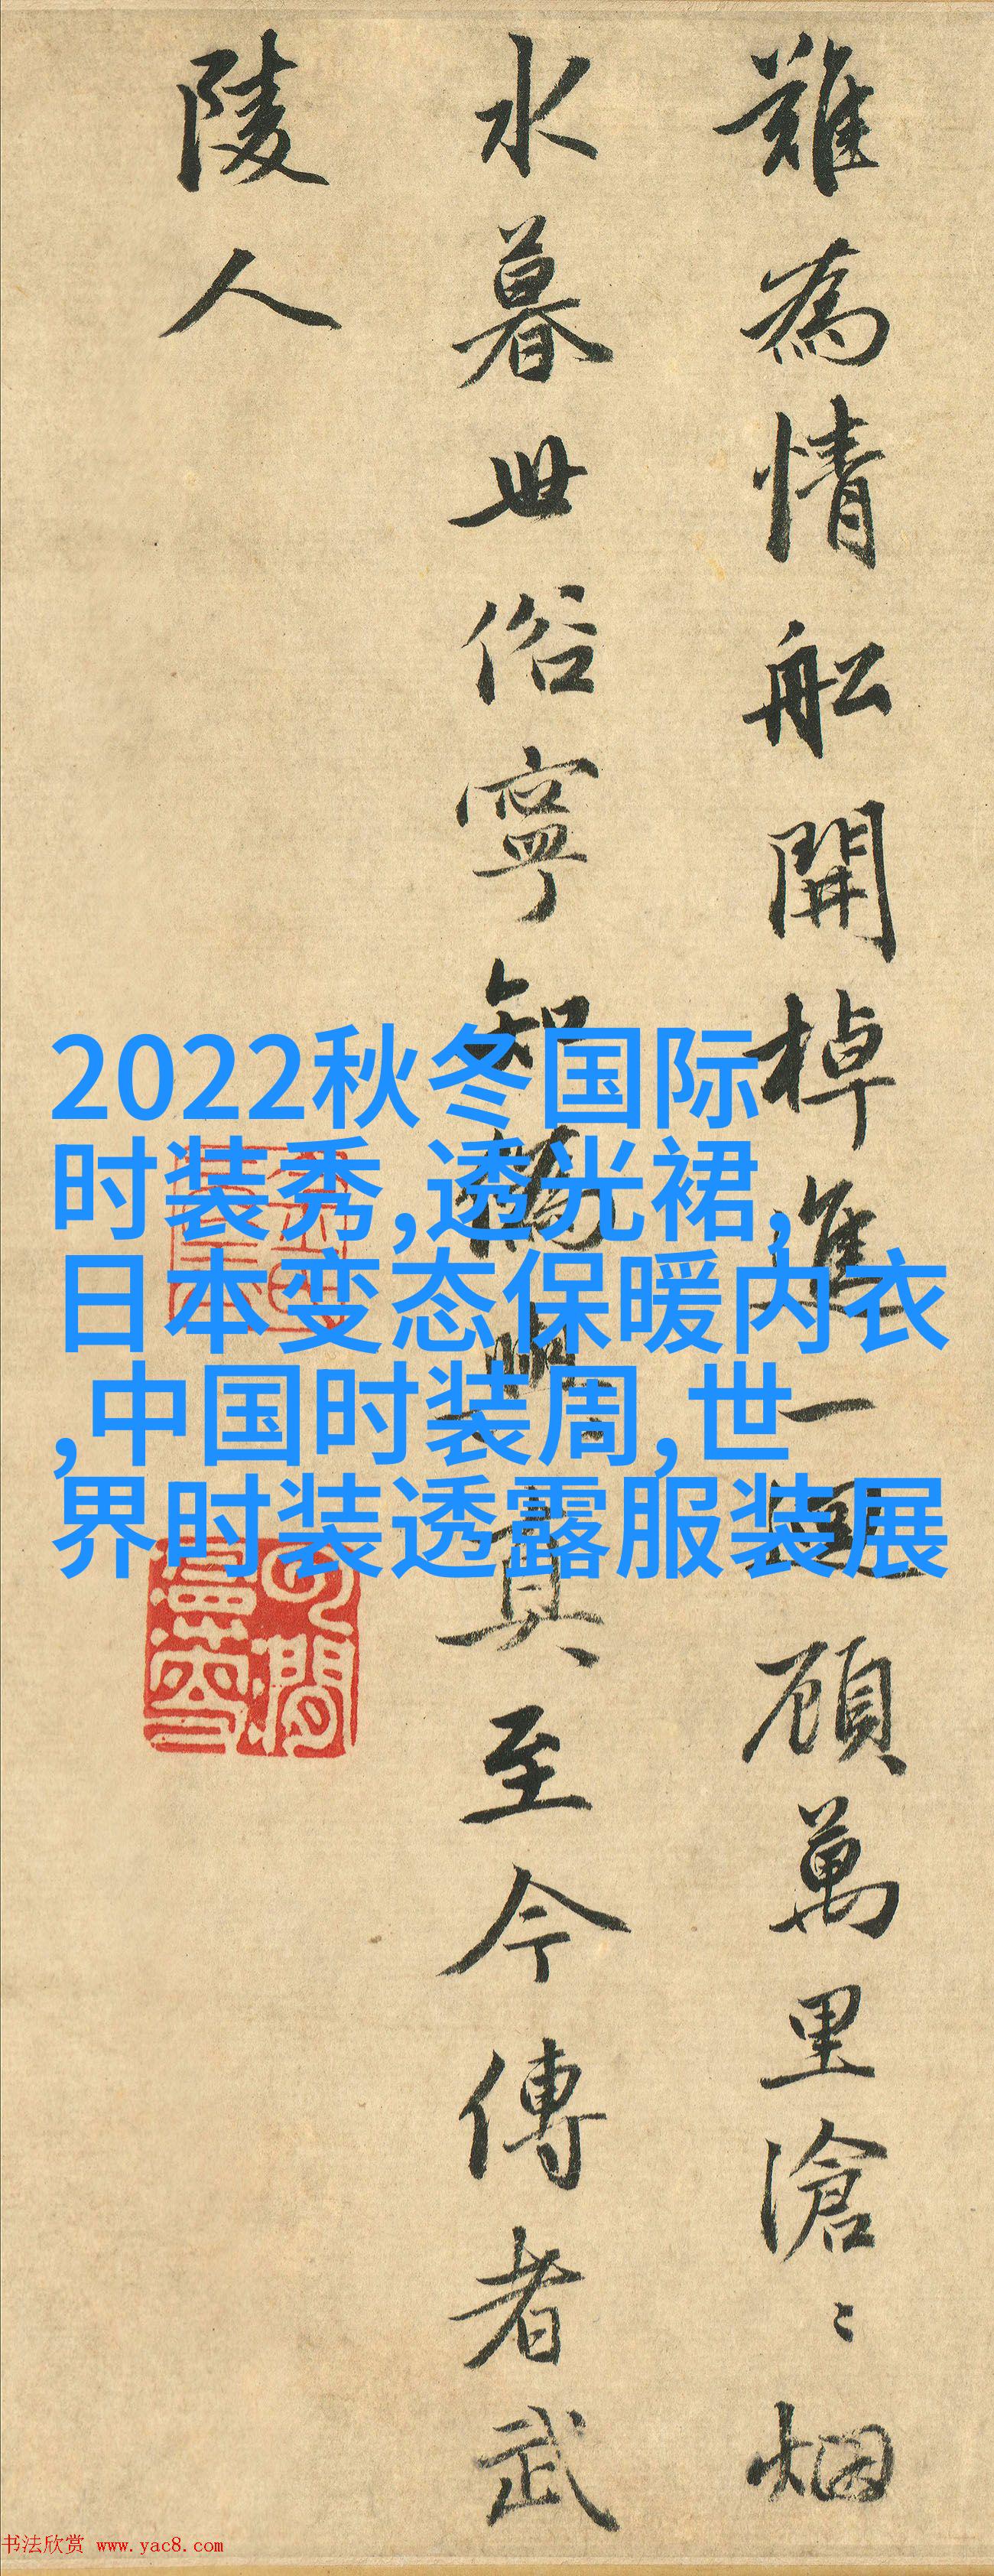 難為情舩開棹進一迴顧萬里滄〻烟
水暮世俗寧知偽與真至今傳者武
陵人
2022秋冬国际
时装秀,透光裙,
日本变态保暖内衣
,中国时装周,世
界时装透露服装展
书法欣赏 www.yac8.com